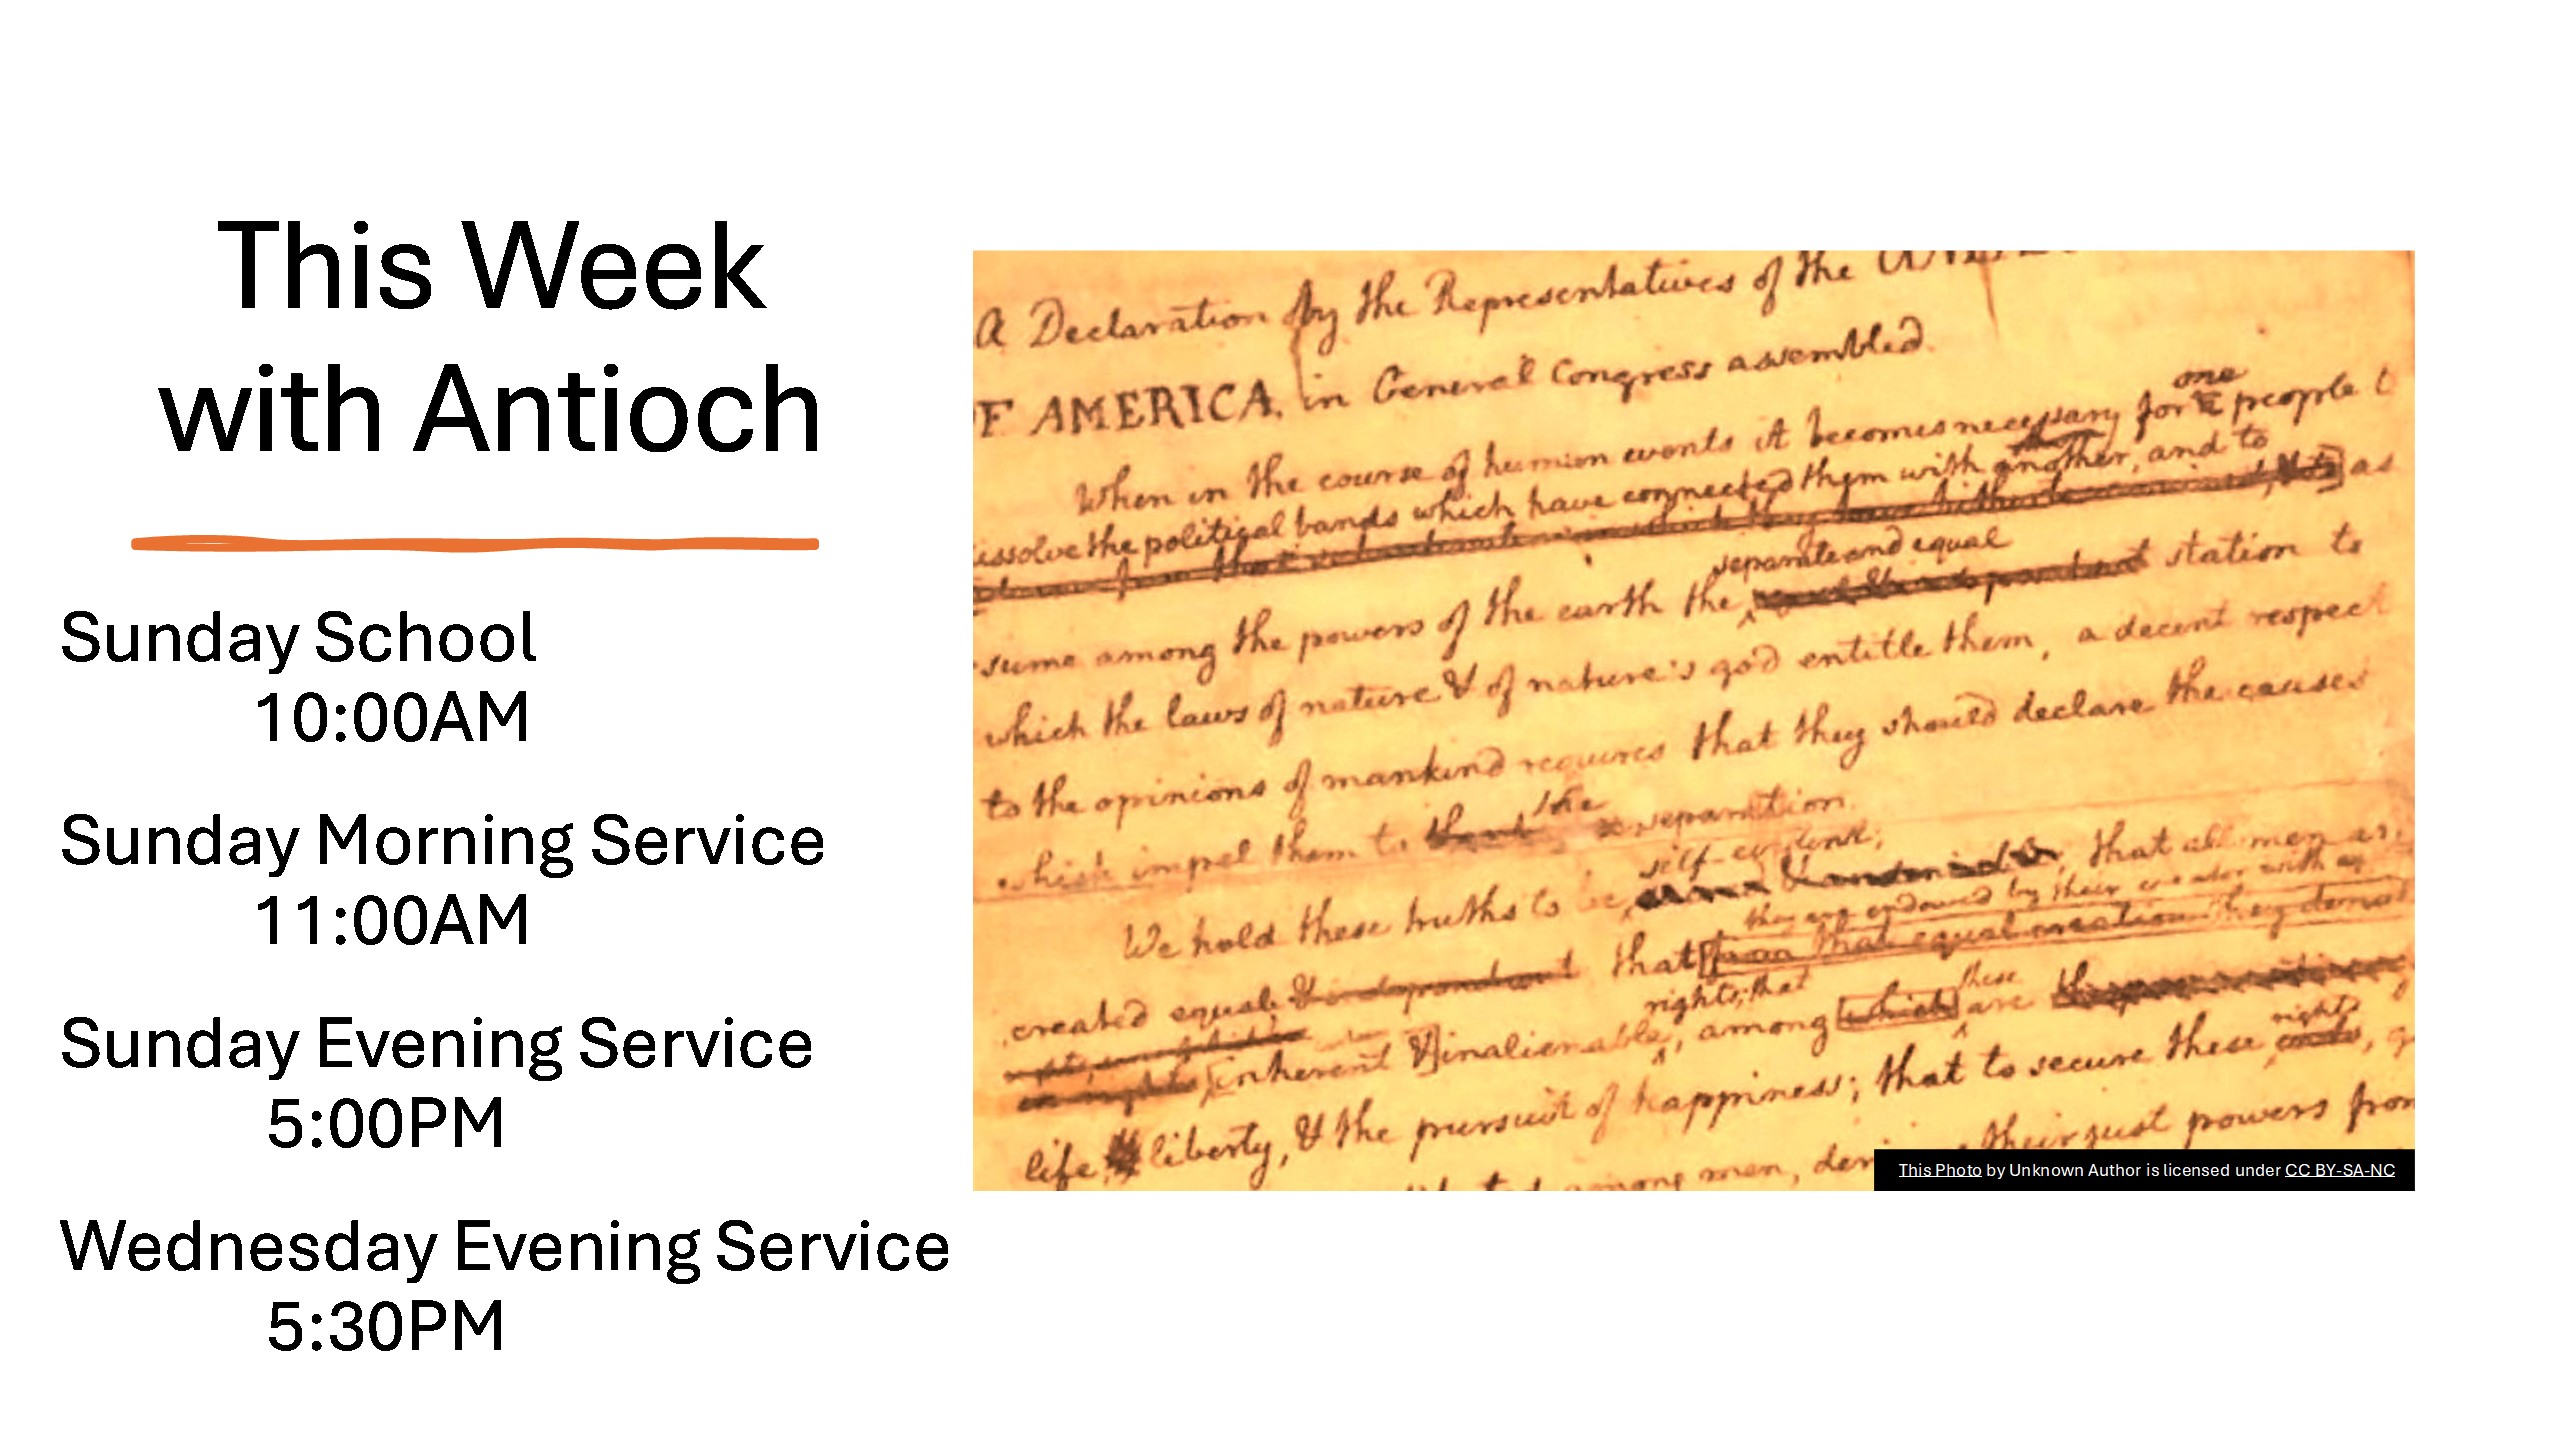 This Week
with Antioch
Sunday School
10:00AM
Sunday Morning Service
11:00AM
Sunday Evening Service
5:00PM
Wednesday Evening Service
5:30PM
a Declaration by the Representatives of the
F AMERICA, in General Congress assembled.
one
When in the course of human events it becomes necessary for people
issolve the political bands which have connected them with another, and to
as
separate and equal
sume among the powers of the earth the station to
which the laws of nature & of nature's god entitle them, a decent respect
to the opinions of mankind requires that they should declare the causes
which impel them to the separation.
self-evident;
We hold these truths to be that all men ar
they are endowed by their creator with
created equal & independant that from that equal creation they
rights; that these
inherent & inalienable, among which are
rights
life, liberty, & the pursuit of happiness; that to secure these ends,
among men, their just powers from
This Photo by Unknown Author is licensed under CC BY-SA-NC